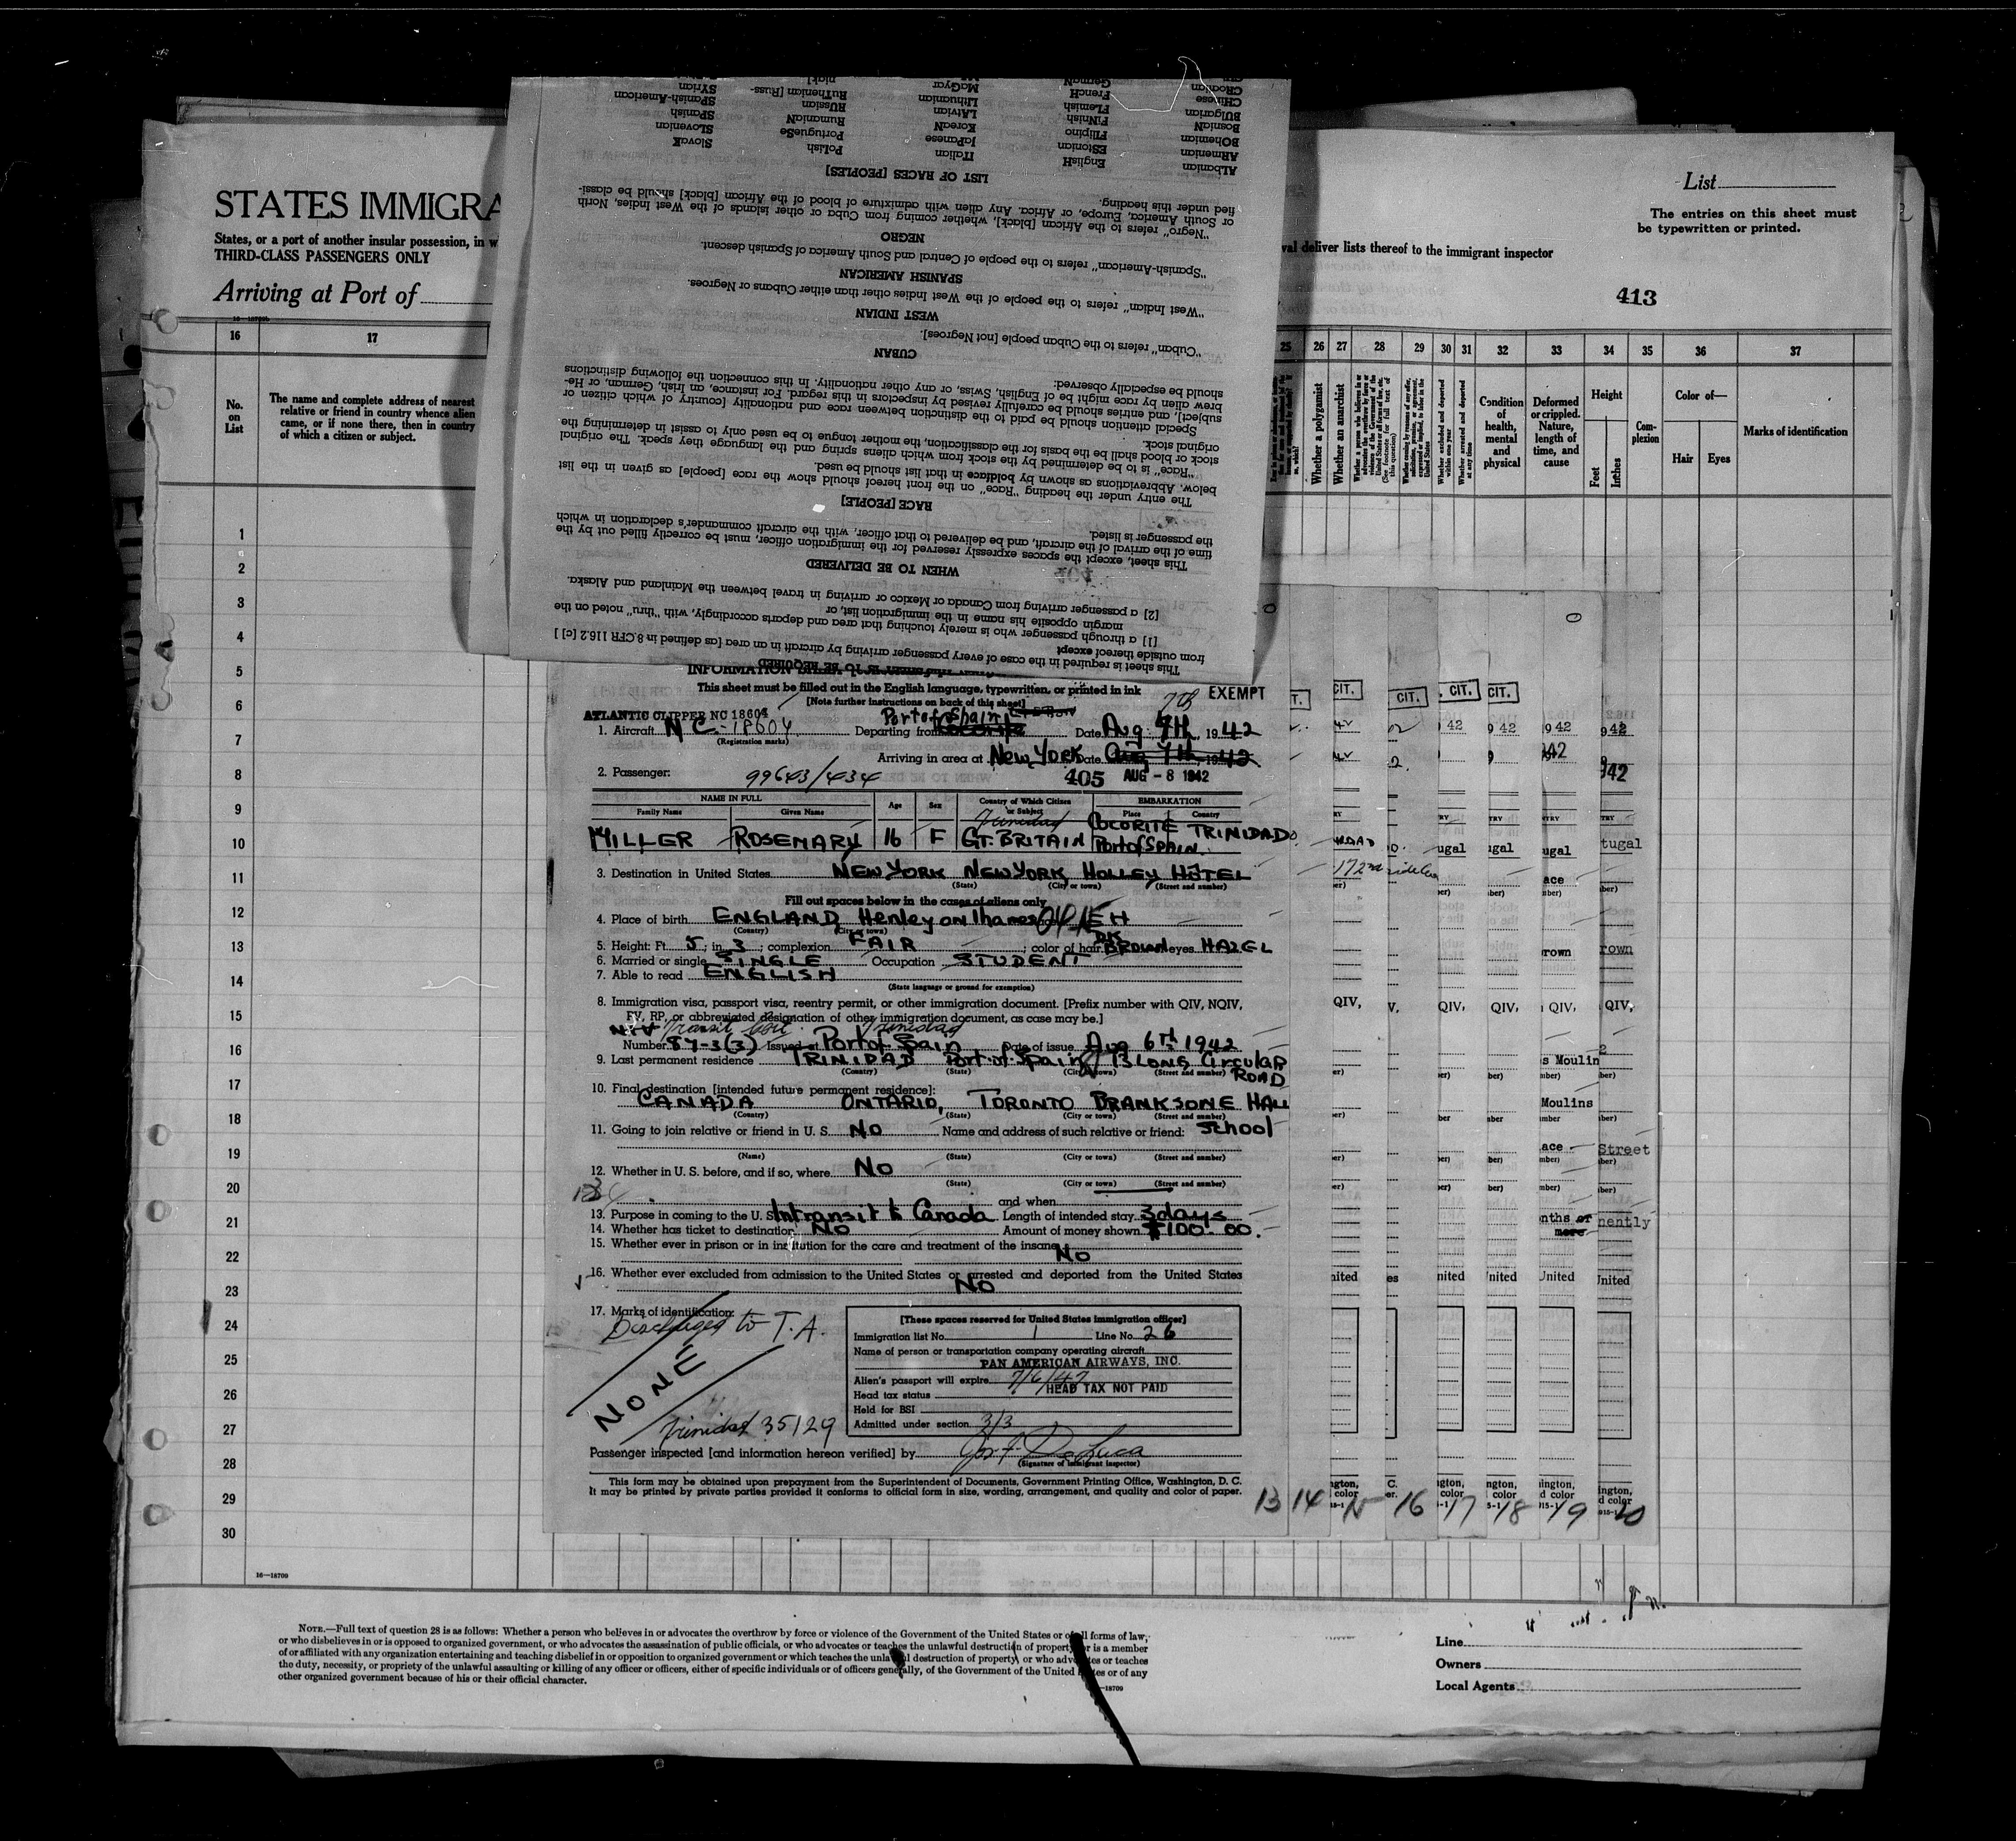 STATES IMMIGRA
States, or a port of another insular possession, in w
THIRD-CLASS PASSENGERS ONLY
Arriving at Port of
16—18709b
16 17
No. on List
The name and complete address of nearest
relative or friend in country whence alien
came, or if none there, then in country
of which a citizen or subject.
List
The entries on this sheet must
be typewritten or printed.
val deliver lists thereof to the immigrant inspector
413
25 26 27 28 29 30 31 32 33 34 35 36 37
Whether a polygamist
Whether an anarchist
Whether excluded and deported within one year
Whether arrested and deported at any time
Condition of health, mental and physical
Deformed or crippled. Nature, length of time, and cause
Height
Feet Inches
Com-plexion
Color of—
Hair Eyes
Marks of identification
1
2
3
4
5
6
7
8
9
10
11
12
13
14
15
16
17
18
19
20
21
22
23
24
25
26
27
28
29
30
16—18709
INFORMATION
THIS SHEET IS TO BE REQUIRED
This sheet is required in the case of every passenger arriving by aircraft in an area [as defined in 8 CFR 116.2 [c] ]
from outside thereof except
[1] a through passenger who is merely touching that area and departs accordingly, with "thru" noted on the
margin opposite his name in the immigration list, or
[2] a passenger arriving from Canada or Mexico or arriving in travel between the Mainland and Alaska.
WHEN TO BE DELIVERED
This sheet, except the spaces expressly reserved for the immigration officer, must be correctly filled out by the
time of the arrival of the aircraft, and be delivered to that officer, with the aircraft commander's declaration in which
the passenger is listed.
RACE [PEOPLE]
The entry under the heading "Race" on the front hereof should show the race [people] as given in the list
below. Abbreviations as shown by boldface in that list should be used.
"Race" is to be determined by the stock from which aliens sprang and the language they speak. The original
stock or blood shall be the basis for the classification, the mother tongue to be used only to assist in determining the
original stock.
Special attention should be paid to the distinction between race and nationality [country of which citizen or
subject], and entries should be carefully revised by inspectors in this regard. For instance, an Irish, German, or He-
brew alien by race might be of English, Swiss, or any other nationality. In this connection the following distinctions
should be especially observed:
CUBAN
"Cuban" refers to the Cuban people [not Negroes].
WEST INDIAN
"West Indian" refers to the people of the West Indies other than either Cubans or Negroes.
SPANISH AMERICAN
"Spanish-American" refers to the people of Central and South America of Spanish descent.
NEGRO
"Negro" refers to the African [black], whether coming from Cuba or other islands of the West Indies, North
or South America, Europe, or Africa. Any alien with admixture of blood of the African [black] should be classi-
fied under this heading.
LIST OF RACES [PEOPLES]
Albanian EnglisH ITalian PoLish SlovaK
ARmenian EStonian JaPanese PortugueSe SLovenian
BOhemian FIlipino KoreaN RumaniaN SPanish
BosniaN FiNnish LAtvian RUssian SPanish-American
BUlgarian FLemish LIthuanian RuThenian [Russ- SYrian
CHinese FrencH MaGyar niak]
CRoatian GermaN
This sheet must be filled out in the English language, typewritten, or printed in ink
[Note further instructions on back of this sheet]
EXEMPT
ATLANTIC CLIPPER NC 18604
7th
1. Aircraft NC-18604 Departing from Port of Spain Date Aug 7th, 1942
(Registration marks)
Arriving in area at New York Date Aug 7th, 1942
2. Passenger: 99643/434 405 AUG - 8 1942
NAME IN FULL Age Sex Country of Which Citizen or Subject EMBARKATION
Family Name Given Name Place Country
Trinidad COCORITE TRINIDAD
MILLER ROSEMARY 16 F GT. BRITAIN Port of SPAIN
3. Destination in United States NEW YORK NEW YORK HOLLEY HOTEL
(State) (City or town) (Street and number)
Fill out spaces below in the cases of aliens only
4. Place of birth ENGLAND Henley on Thames EH
(Country) (City or town)
5. Height: Ft. 5; in. 3; complexion FAIR; color of hair DK BROWN eyes HAZEL
6. Married or single SINGLE Occupation STUDENT
7. Able to read ENGLISH
(State language or ground for exemption)
8. Immigration visa, passport visa, reentry permit, or other immigration document. [Prefix number with QIV, NQIV,
PV, RP, or abbreviated designation of other immigration document, as case may be.]
Transit Cert. Trinidad
Number 87-3(3) Issued at Port of Spain Date of issue Aug 6th 1942
9. Last permanent residence TRINIDAD Port of Spain 13 LONG CIRCULAR ROAD
(Country) (State) (City or town) (Street and number)
10. Final destination [intended future permanent residence]:
CANADA ONTARIO, TORONTO BRANKSONE HALL
(Country) (State) (City or town) (Street and number)
11. Going to join relative or friend in U. S. NO Name and address of such relative or friend: School
(Name) (State) (City or town) (Street and number)
12. Whether in U. S. before, and if so, where NO
(State) (City or town) (Street and number)
and when
13. Purpose in coming to the U. S. Intransit to Canada Length of intended stay 3 days
14. Whether has ticket to destination NO Amount of money shown $100.00.
15. Whether ever in prison or in institution for the care and treatment of the insane NO
16. Whether ever excluded from admission to the United States or arrested and deported from the United States
NO
17. Marks of identification:
Discharged to T.A.
NONE
Trinidad 35129
[These spaces reserved for United States immigration officer]
Immigration list No. 1 Line No. 26
Name of person or transportation company operating aircraft
PAN AMERICAN AIRWAYS, INC.
Alien's passport will expire 7/6/47
Head tax status HEAD TAX NOT PAID
Held for BSI
Admitted under section 3/3
Passenger inspected [and information hereon verified] by Jos. F. DeLuca
(Signature of immigrant inspector)
This form may be obtained upon prepayment from the Superintendent of Documents, Government Printing Office, Washington, D. C.
It may be printed by private parties provided it conforms to official form in size, wording, arrangement, and quality and color of paper.
13 14 15 16 17 18 19 20
CIT. CIT. CIT. CIT.
42 42 942 942
942 942
ugal ugal ugal tugal
ace
rown rown
QIV, V, QIV, QIV, QIV, QIV,
s Moulin
Moulins
ace Street
nths or more nently
nited es nited United United United
NOTE.—Full text of question 28 is as follows: Whether a person who believes in or advocates the overthrow by force or violence of the Government of the United States or of all forms of law,
or who disbelieves in or is opposed to organized government, or who advocates the assassination of public officials, or who advocates or teaches the unlawful destruction of property, or is a member
of or affiliated with any organization entertaining and teaching disbelief in or opposition to organized government or which teaches the unlawful destruction of property, or who advocates or teaches
the duty, necessity, or propriety of the unlawful assaulting or killing of any officer or officers, either of specific individuals or of officers generally, of the Government of the United States or of any
other organized government because of his or their official character.
—18709
Line
Owners
Local Agents